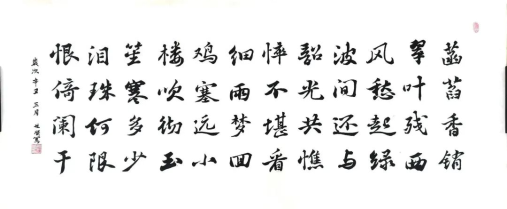 菡萏香销
翠叶残西
风愁起绿
波间还与
韶光共憔
悴不堪看
细雨梦回
鸡塞远小
楼吹彻玉
笙寒多少
泪珠何限
恨倚阑干
岁次辛丑三月